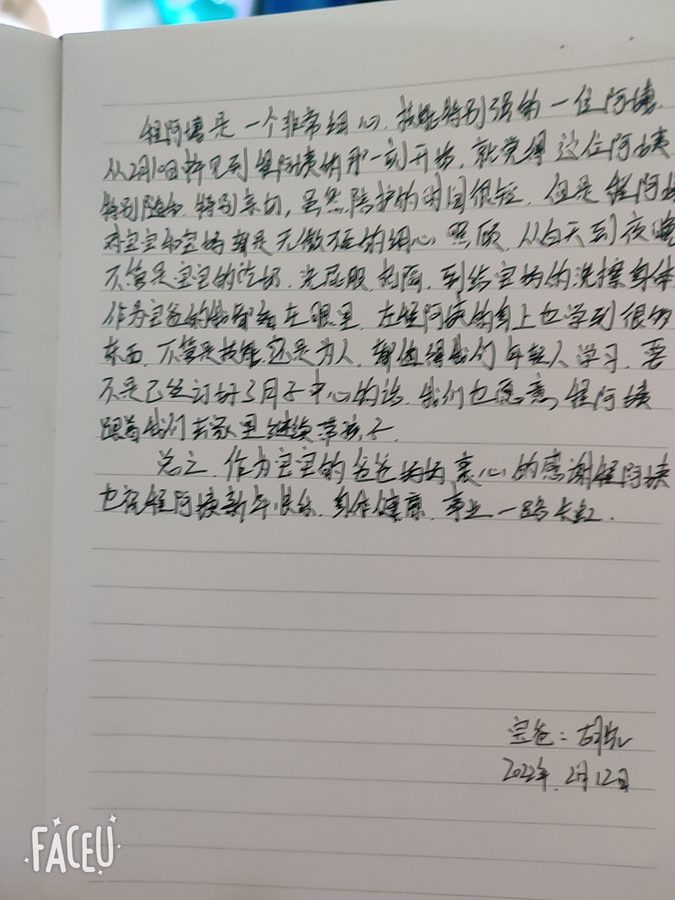 程阿姨是一个非常细心,技能特别强的一位阿姨.
从2月10日拜见到程阿姨的那一刻开始,就觉得这位阿姨
特别随和,特别亲切,虽然陪护的时间很短,但是程阿姨
对宝宝和宝妈都是无微不至的细心照顾,从白天到夜晚
不管是宝宝的吃奶,洗屁股,到给宝妈的洗擦身体
作为宝爸的我都看在眼里,在程阿姨的身上也学到很多
东西,不管是技能还是为人,都值得我们年轻人学习,要
不是已经订好了月子中心的话,我们也愿意,程阿姨
跟着我们去家里继续带孩子.
总之,作为宝宝的爸爸妈妈衷心的感谢程阿姨
也祝程阿姨新年快乐,身体健康,事业一路长虹.
宝爸:胡
2022年.2月12日
FACEU